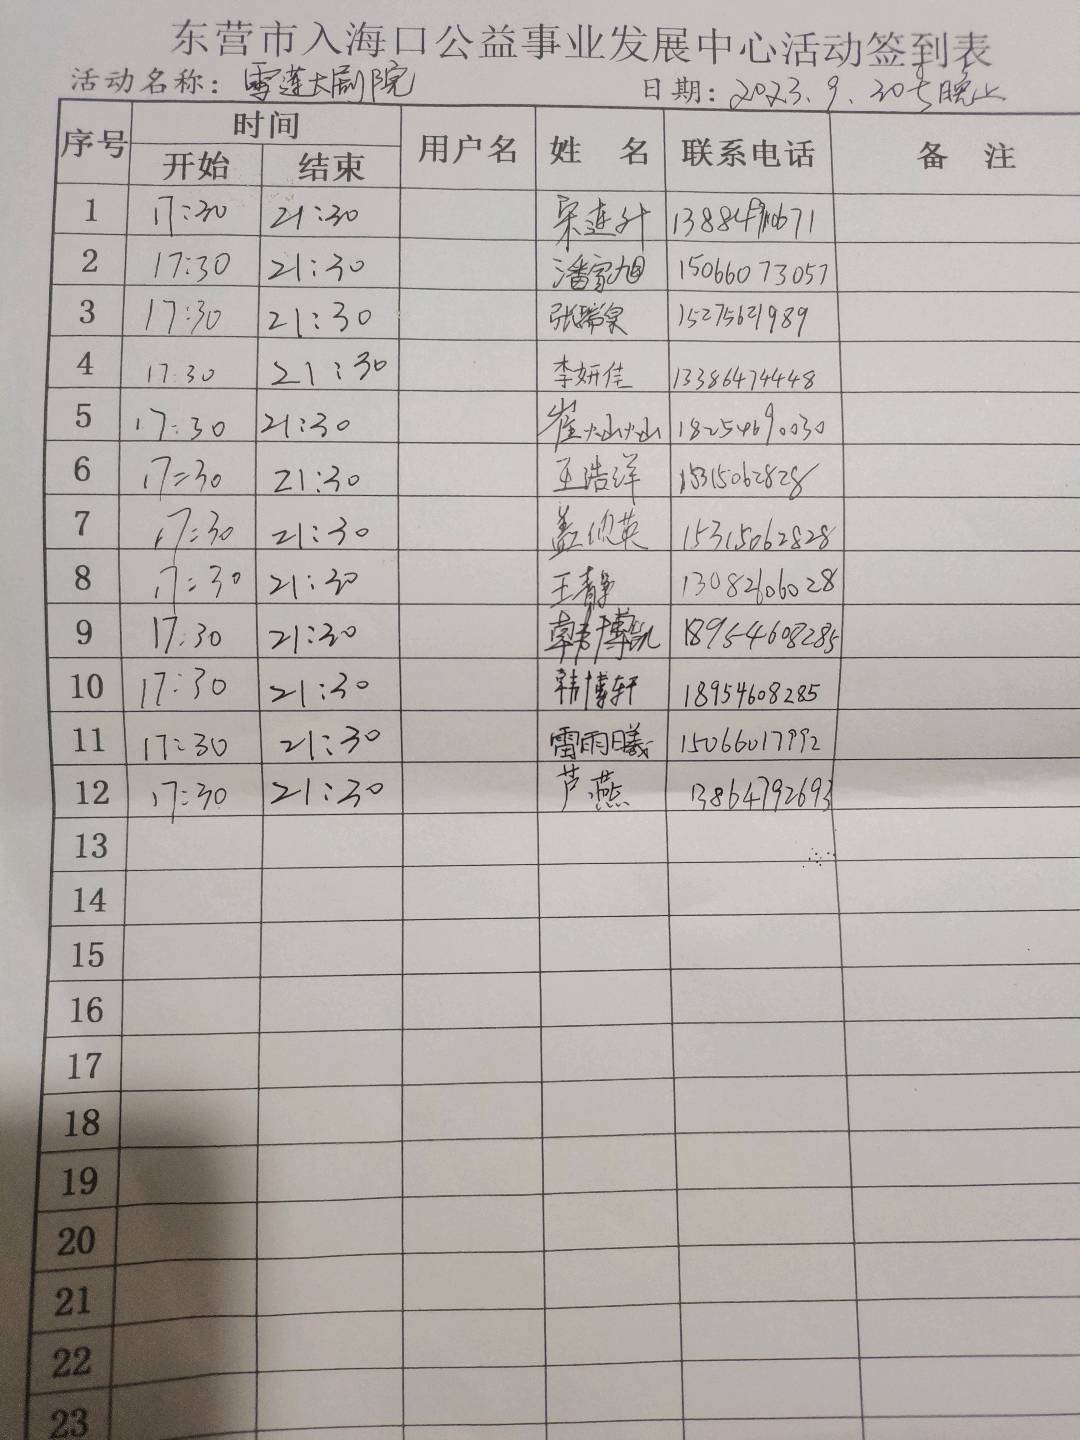 东营市入海口公益事业发展中心活动签到表
活动名称：雪莲大剧院 日期：2023.9.30号晚上
序号 时间 用户名 姓 名 联系电话 备 注
开始 结束
1 17:30 21:30 宋连升
2 17:30 21:30 潘家旭 15066073057
3 17:30 21:30 张瑞泉 15275621989
4 17:30 21:30 李妍佳 13386474448
5 17:30 21:30 崔灿灿 18254690030
6 17:30 21:30 王浩洋 15315062828
7 17:30 21:30 盖俊英 15315062828
8 17:30 21:30 王静 13082606028
9 17:30 21:30 韩博凯 18954608285
10 17:30 21:30 韩博轩 18954608285
11 17:30 21:30 雷雨曦 15066017992
12 17:30 21:30 芦燕 13864792693
13
14
15
16
17
18
19
20
21
22
23